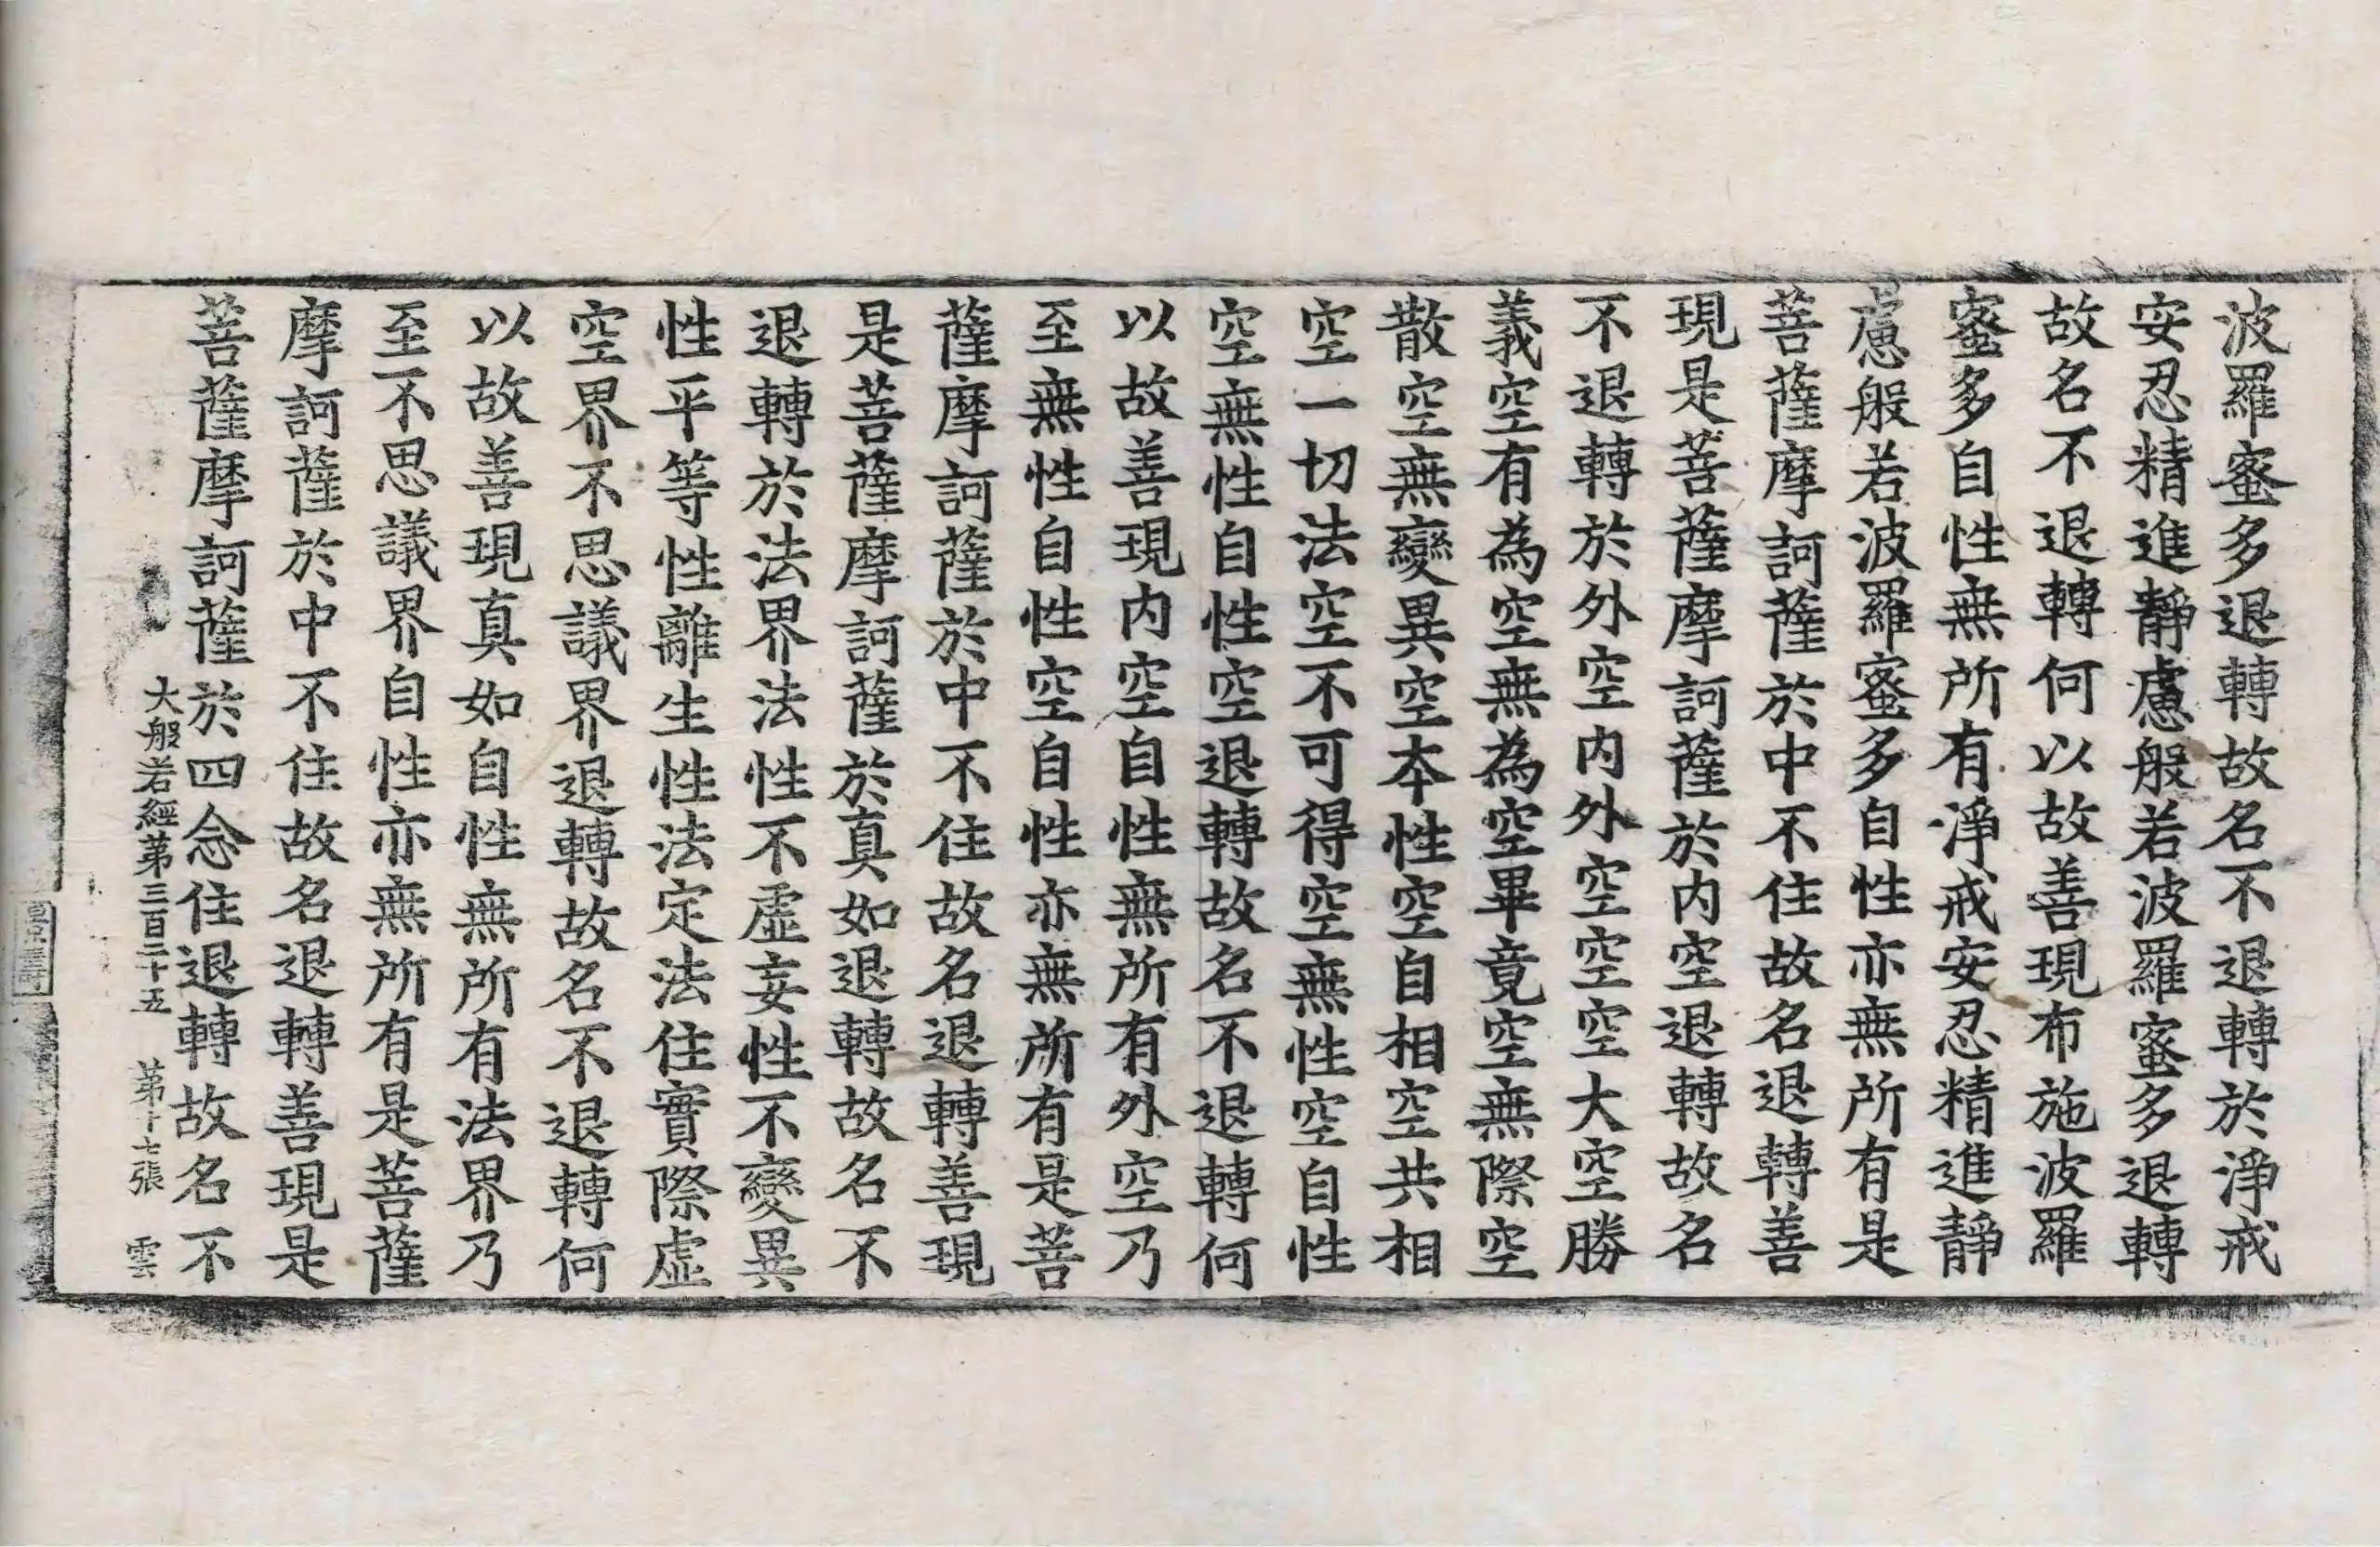 波羅蜜多退轉故名不退轉於淨戒
安忍精進靜慮般若波羅蜜多退轉
故名不退轉何以故善現布施波羅
蜜多自性無所有淨戒安忍精進靜
慮般若波羅蜜多自性亦無所有是
菩薩摩訶薩於中不住故名退轉善
現是菩薩摩訶薩於內空退轉故名
不退轉於外空內外空空空大空勝
義空有為空無為空畢竟空無際空
散空無變異空本性空自相空共相
空一切法空不可得空無性空自性
空無性自性空退轉故名不退轉何
以故善現內空自性無所有外空乃
至無性自性空自性亦無所有是菩
薩摩訶薩於中不住故名退轉善現
是菩薩摩訶薩於真如退轉故名不
退轉於法界法性不虛妄性不變異
性平等性離生性法定法住實際虛
空界不思議界退轉故名不退轉何
以故善現真如自性無所有法界乃
至不思議界自性亦無所有是菩薩
摩訶薩於中不住故名退轉善現是
菩薩摩訶薩於四念住退轉故名不
大般若經第三百二十五 第十七張 雲